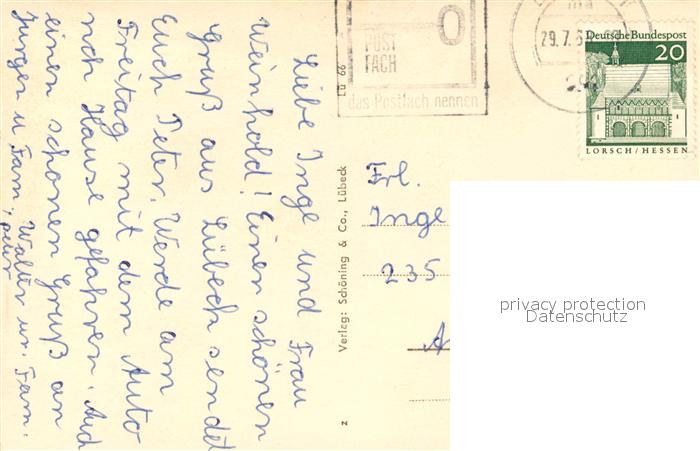 Liebe Inge und Frau
Weinhold! Einen schönen
Gruß aus Lübeck sendet
Euch Peter. Werde am
Freitag mit dem Auto
nch Hause gefahren. Auch
einen schonen Gruß an
Jürgen u Fam, Walter un. Fam.
Peter
Lü 66
Verlag: Schöning & Co., Lübeck
z
POST
FACH
das Postfach nennen
29.7.6
Deutsche Bundespost
20
LORSCH/HESSEN
Frl.
Inge
235
privacy protection
Datenschutz